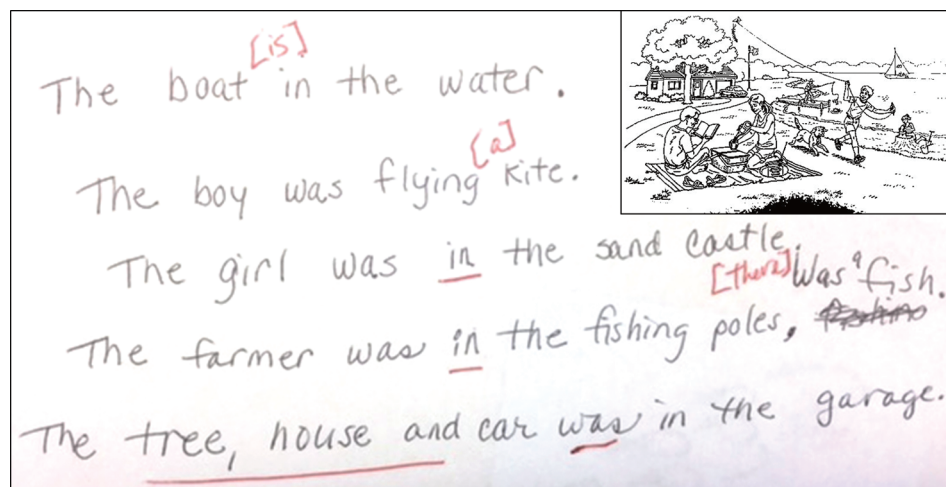 The boat [is] in the water.
The boy was flying [a] kite.
The girl was in the sand castle.
[there] Was a fish.
The farmer was in the fishing poles,
The tree, house and car was in the garage.